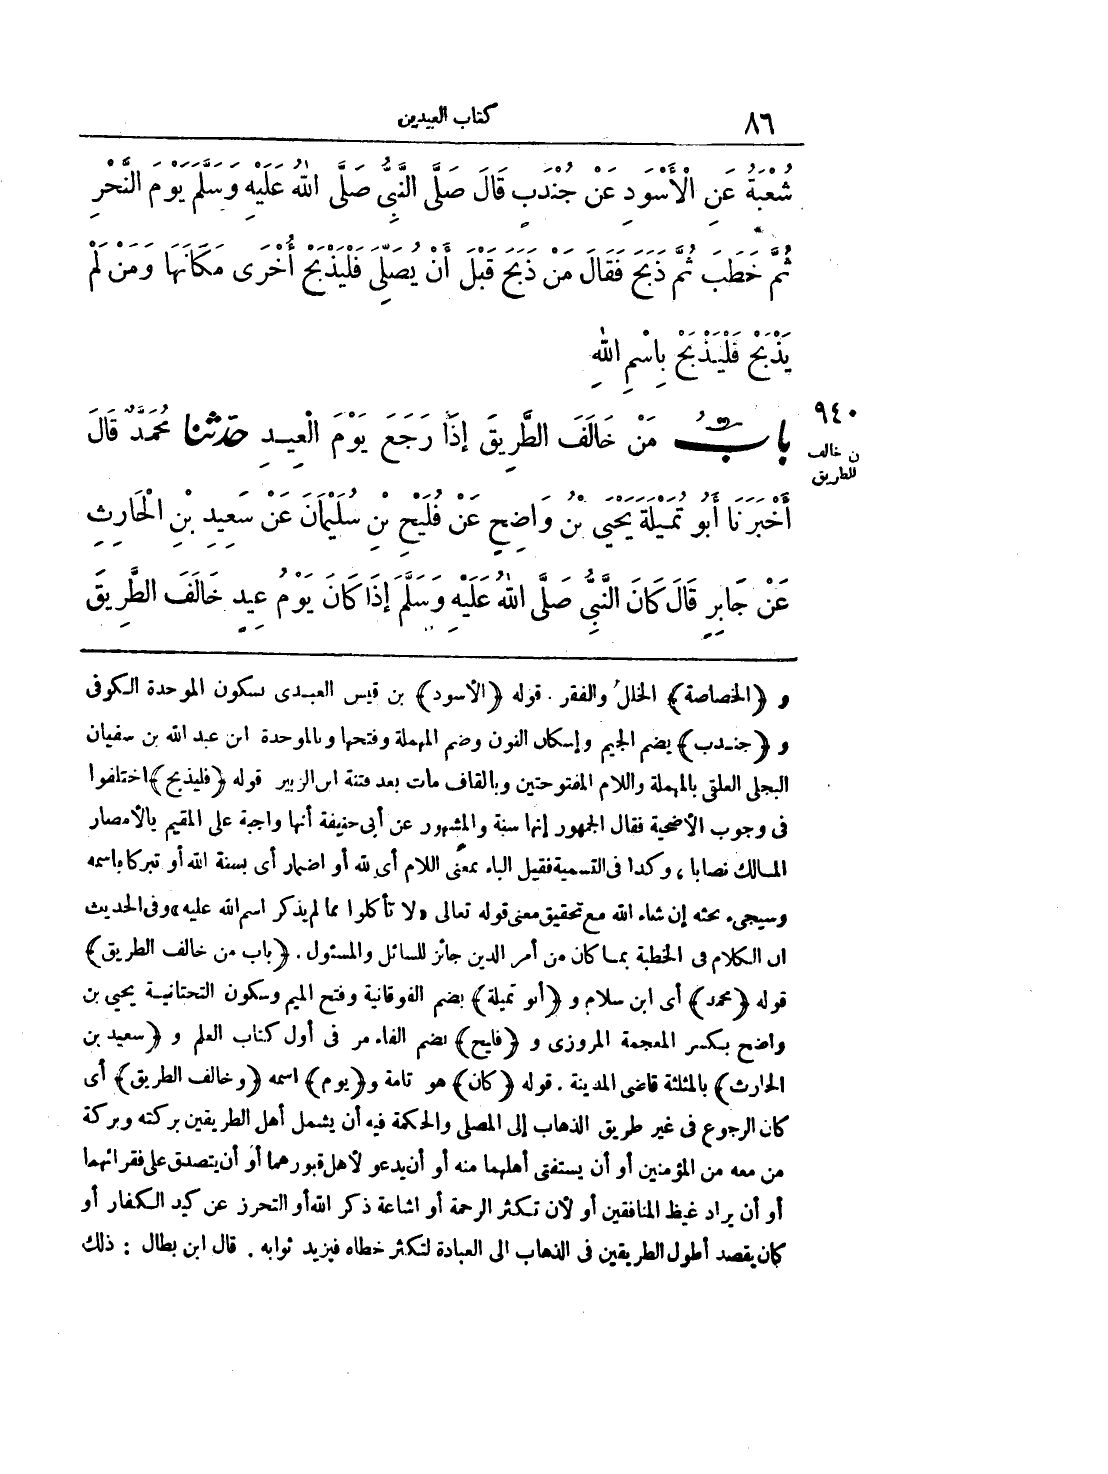 ٨٦ كتاب العيدين
شُعْبَةُ عَنِ الْأَسْوَدِ عَنْ جُنْدَبٍ قَالَ صَلَّى النَّبِىُّ صَلَّى اللهُ عَلَيْهِ وَسَلَّمَ يَوْمَ النَّحْرِ
ثُمَّ خَطَبَ ثُمَّ ذَبَحَ فَقَالَ مَنْ ذَبَحَ قَبْلَ أَنْ يُصَلِّىَ فَلْيَذْبَحْ أُخْرَى مَكَانَهَا وَمَنْ لَمْ
يَذْبَحْ فَلْيَذْبَحْ بِاسْمِ اللهِ
٩٤٠
ن خالف
للطريق
بابُ مَنْ خَالَفَ الطَّرِيقَ إِذَا رَجَعَ يَوْمَ الْعِيدِ حدثنا مُحَمَّدٌ قَالَ
أَخْبَرَنَا أَبُو تُمَيْلَةَ يَحْيَى بْنُ وَاضِحٍ عَنْ فُلَيْحِ بْنِ سُلَيْمَانَ عَنْ سَعِيدِ بْنِ الْحَارِثِ
عَنْ جَابِرٍ قَالَ كَانَ النَّبِىُّ صَلَّى اللهُ عَلَيْهِ وَسَلَّمَ إِذَا كَانَ يَوْمُ عِيدٍ خَالَفَ الطَّرِيقَ
و ﴿الخصاصة﴾ الخلل والفقر . قوله ﴿الأسود﴾ بن قيس العبدى بسكون الموحدة الكوفى
و ﴿جندب﴾ بضم الجيم وإسكان النون وضم المهملة وفتحها وبالموحدة ابن عبد الله بن سفيان
البجلى العلقى بالمهملة واللام المفتوحتين وبالقاف مات بعد فتنة ابن الزبير قوله ﴿فليذبح﴾ اختلفوا
فى وجوب الأضحية فقال الجمهور إنها سنة والمشهور عن أبى حنيفة أنها واجبة على المقيم بالأمصار
المالك نصابا ، وكذا فى التسمية فقيل الباء بمعنى اللام أى لله أو اضمار أى بسنة الله أو تبركا باسمه
وسيجىء بحثه إن شاء الله مع تحقيق معنى قوله تعالى «لا تأكلوا مما لم يذكر اسم الله عليه» وفى الحديث
ان الكلام فى الخطبة بما كان من أمر الدين جائز للسائل والمسئول . ﴿باب من خالف الطريق﴾
قوله ﴿محمد﴾ أى ابن سلام و ﴿أبو تميلة﴾ بضم الفوقانية وفتح الميم وسكون التحتانية يحيى بن
واضح بكسر المعجمة المروزى و ﴿فليح﴾ بضم الفاء مر فى أول كتاب العلم و ﴿سعيد بن
الحارث﴾ بالمثلثة قاضى المدينة . قوله ﴿كان﴾ هو تامة و ﴿يوم﴾ اسمه ﴿وخالف الطريق﴾ أى
كان الرجوع فى غير طريق الذهاب إلى المصلى والحكمة فيه أن يشمل أهل الطريقين بركته وبركة
من معه من المؤمنين أو أن يستفتى أهلهما منه أو أن يدعو لأهل قبورهما أو أن يتصدق على فقرائهما
أو أن يراد غيظ المنافقين أو لأن تكثر الرحمة أو اشاعة ذكر الله أو التحرز عن كيد الكفار أو
كان يقصد أطول الطريقين فى الذهاب الى العبادة لتكثر خطاه فيزيد ثوابه . قال ابن بطال : ذلك